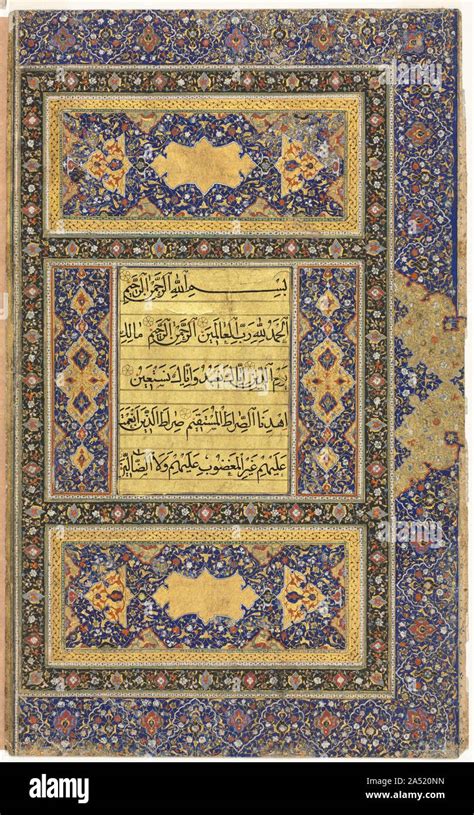 بسم الله الرحمن الرحيم
الحمد لله رب العالمين الرحمن الرحيم مالك
يوم الدين اياك نعبد واياك نستعين
اهدنا الصراط المستقيم صراط الذين انعمت
عليهم غير المغضوب عليهم ولا الضالين
alamy
Image ID: 2A520NN
www.alamy.com